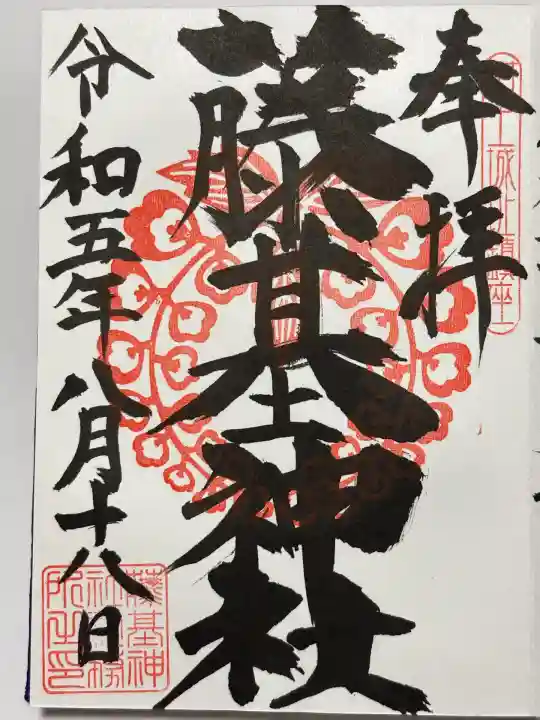 奉拝
藤基神社
令和五年八月十八日
藤基神
社務
所之印